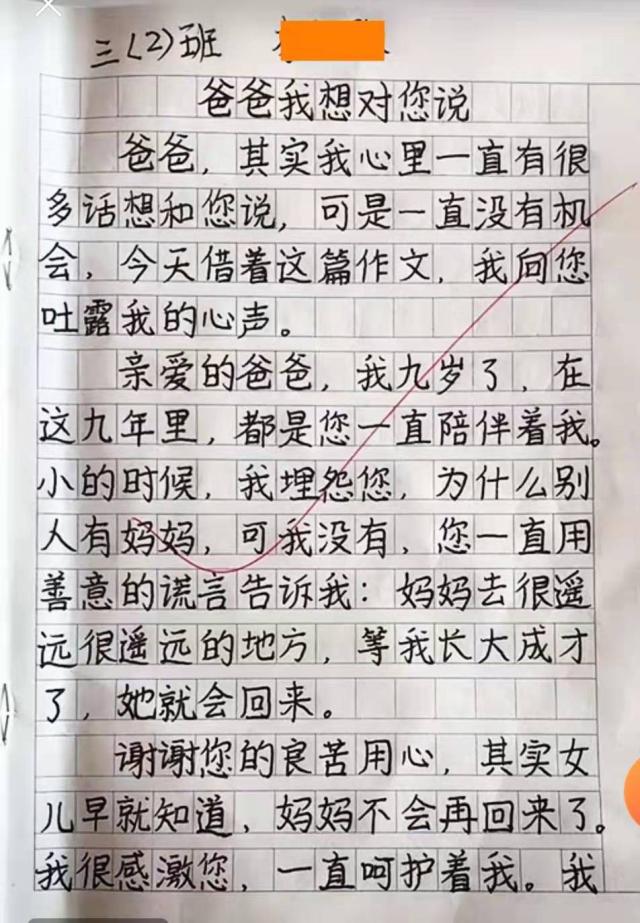 三(2)班
爸爸我想对您说
爸爸，其实我心里一直有很
多话想和您说，可是一直没有机
会，今天借着这篇作文，我向您
吐露我的心声。
亲爱的爸爸，我九岁了，在
这九年里，都是您一直陪伴着我。
小的时候，我埋怨您，为什么别
人有妈妈，可我没有，您一直用
善意的谎言告诉我：妈妈去很遥
远很遥远的地方，等我长大成才
了，她就会回来。
谢谢您的良苦用心，其实女
儿早就知道，妈妈不会再回来了。
我很感激您，一直呵护着我。我